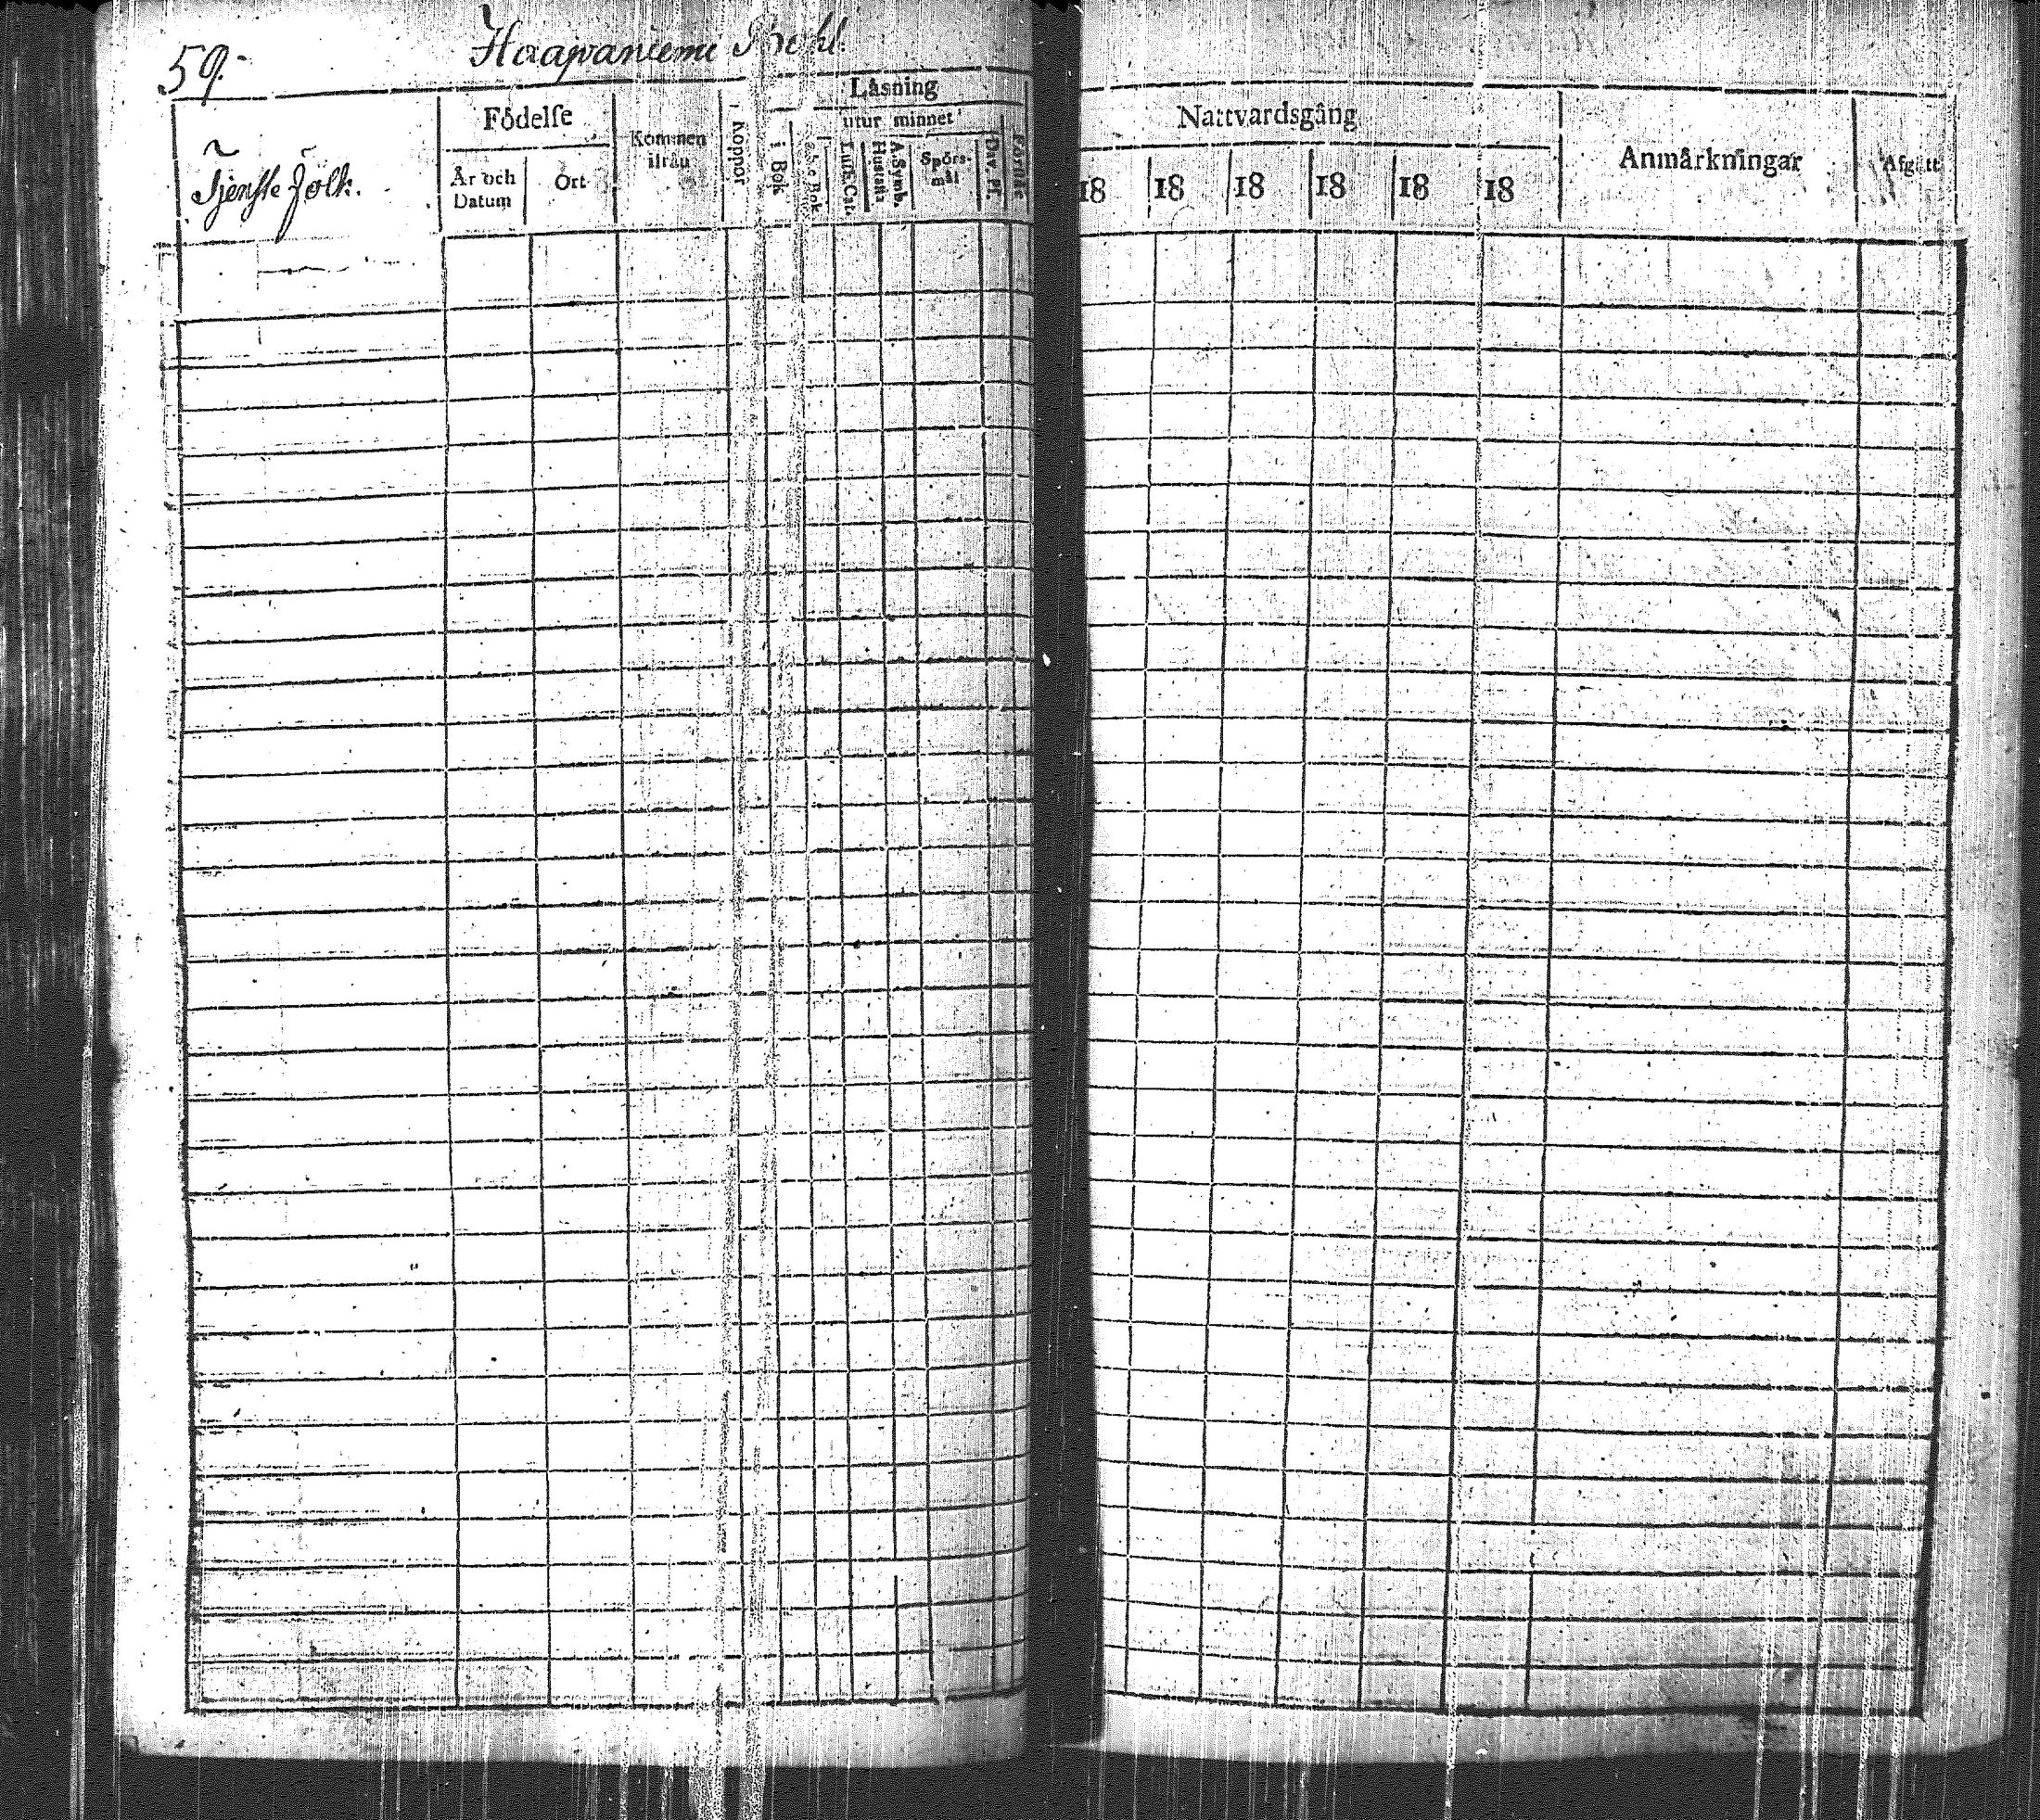 59.
Haapaniemi
Läsning
Födelse
utur minnet
Kommen
ifrån
Koppor
i Bok
Luth. Cat.
Hustafla
A. Symb.
Spörs-
mål
Dav. Ps.
Tjenste Folk.
År och
Datum
Ort
Nattvardsgång
Anmärkningar
Afgått
18 18 18 18 18 18